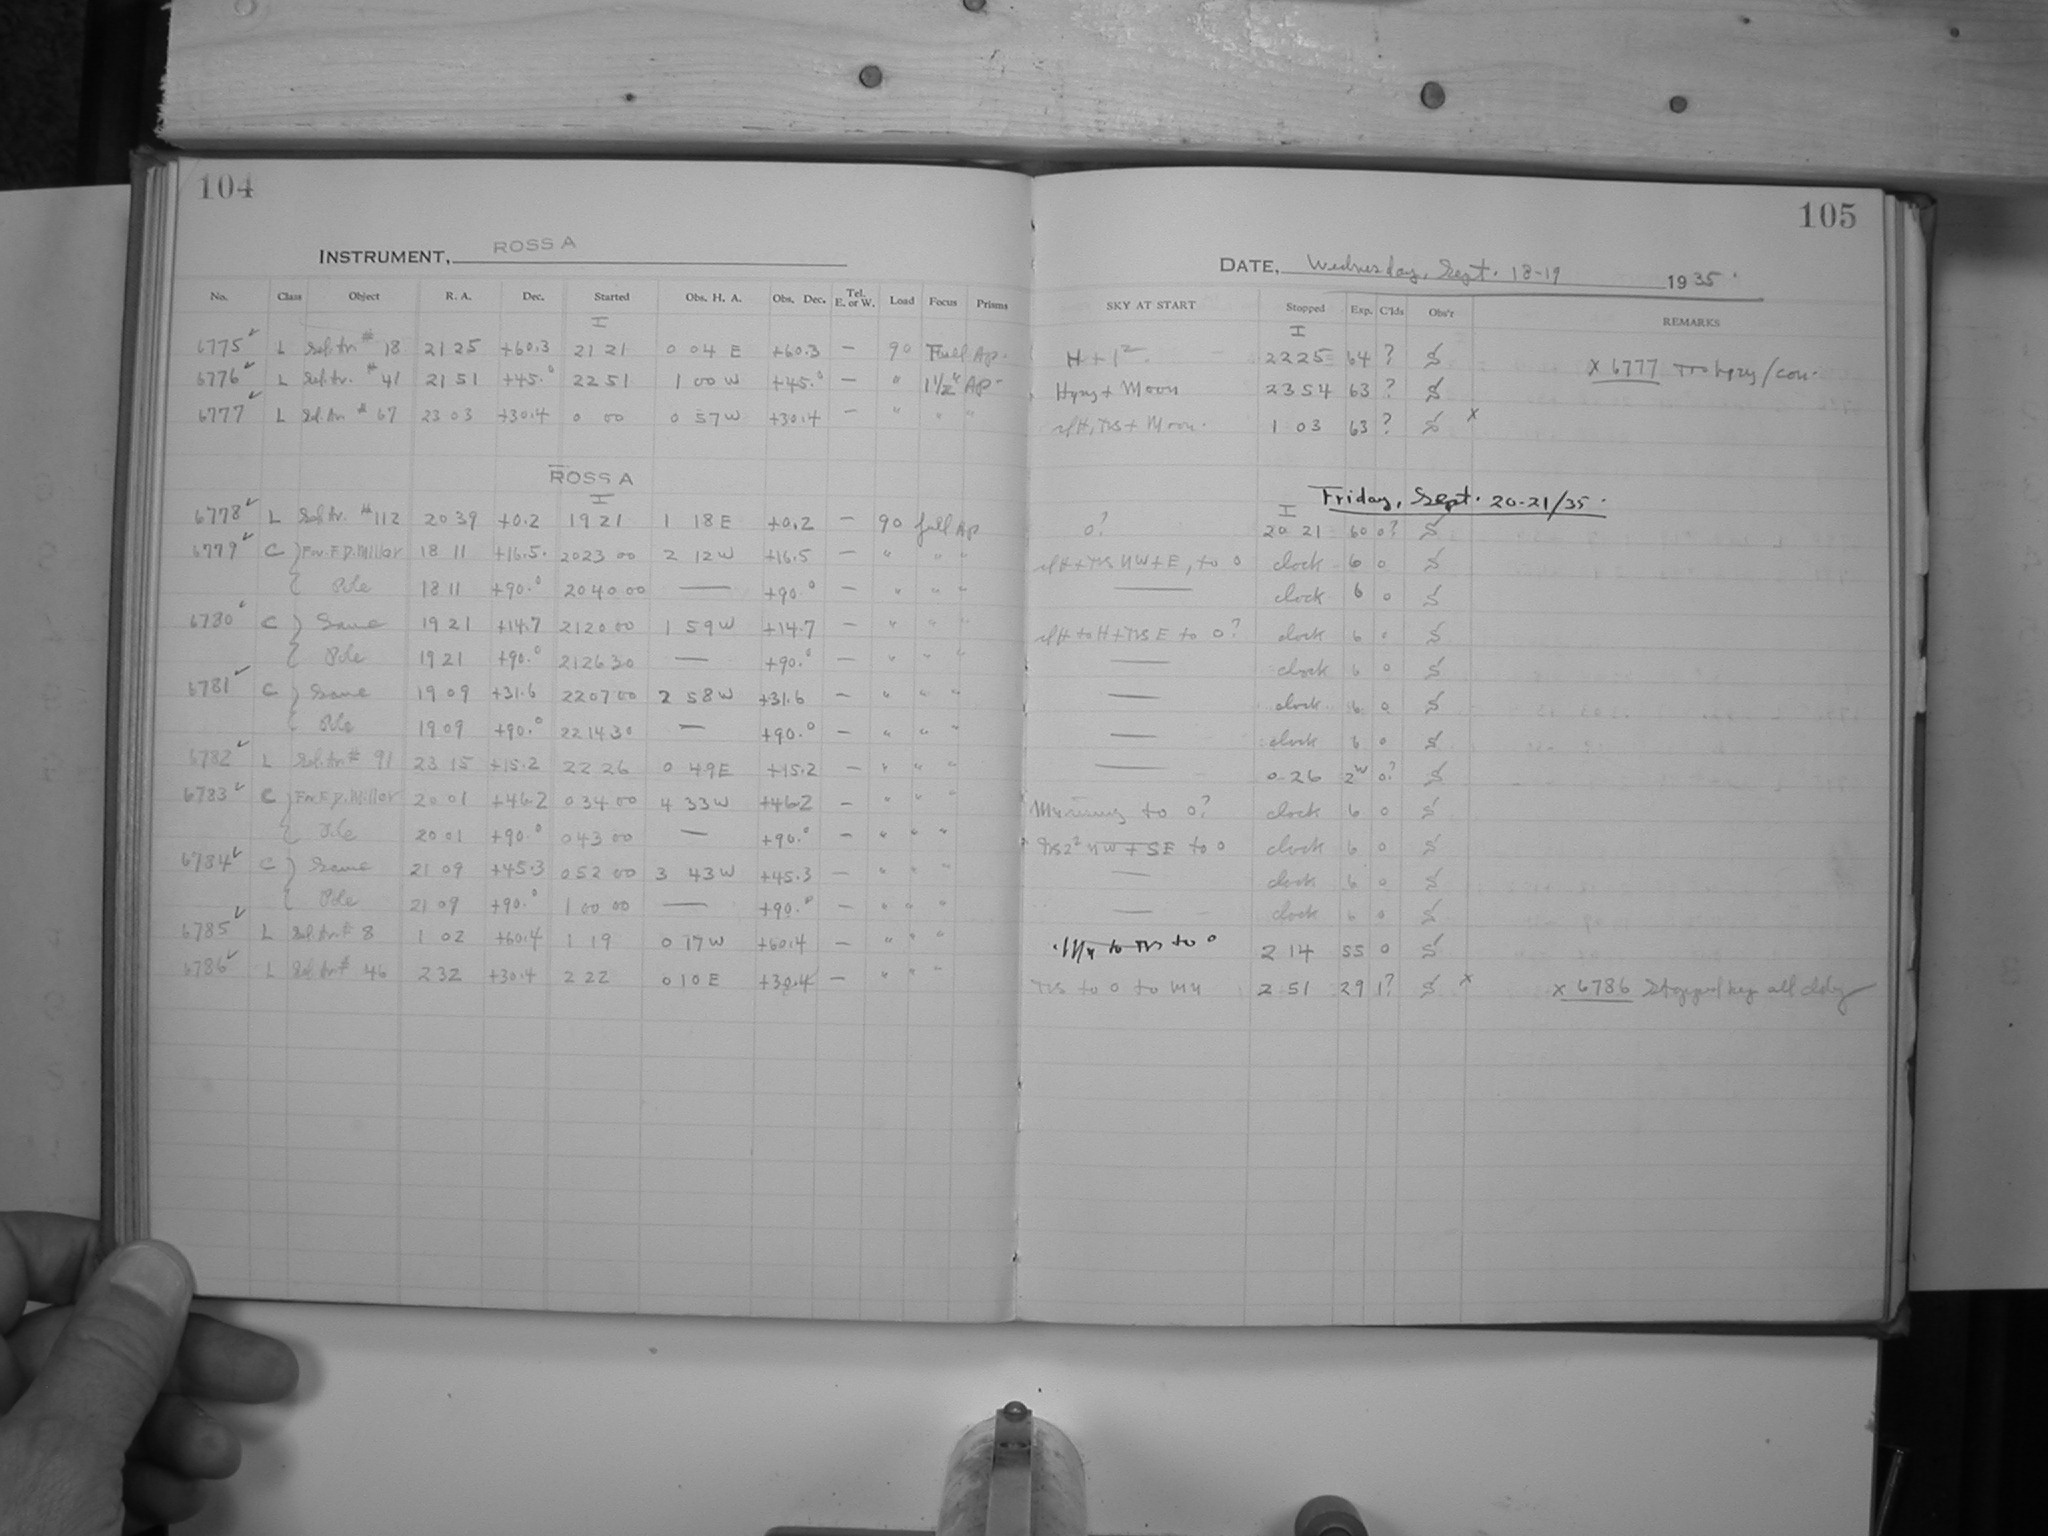 104
INSTRUMENT, ROSS A
No. Class Object R. A. Dec. Started Obs. H. A. Obs. Dec. Tel. E. or W. Load Focus Prisms
I
6775 L Sel. Ar. # 18 21 25 +60.3 21 21 0 04 E +60.3 — 90 Full Ap.
6776 L Sel. Ar. # 41 21 51 +45.° 22 51 1 00 W +45.° — " 1½" Ap.
6777 L Sel. Ar. # 67 23 03 +30.4 0 00 0 57 W +30.4 — " " "
ROSS A
I
6778 L Sel. Ar. # 112 20 39 +0.2 19 21 1 18 E +0.2 — 90 full Ap
6779 C For F.D. Miller 18 11 +16.5 20 23 00 2 12 W +16.5 — " " "
Pole 18 11 +90.° 20 40 00 — +90.° — " " "
6780 C Same 19 21 +14.7 21 20 00 1 59 W +14.7 — " " "
Pole 19 21 +90.° 21 26 30 — +90.° — " " "
6781 C Same 19 09 +31.6 22 07 00 2 58 W +31.6 — " " "
Pole 19 09 +90.° 22 14 30 — +90.° — " " "
6782 L Sel. Ar. # 91 23 15 +15.2 22 26 0 49 E +15.2 — " " "
6783 C For F.D. Miller 20 01 +46.2 0 34 00 4 33 W +46.2 — " " "
Pole 20 01 +90.° 0 43 00 — +90.° — " " "
6784 C Same 21 09 +45.3 0 52 00 3 43 W +45.3 — " " "
Pole 21 09 +90.° 1 00 00 — +90.° — " " "
6785 L Sel. Ar # 8 1 02 +60.4 1 19 0 17 W +60.4 — " " "
6786 L Sel. Ar # 46 2 32 +30.4 2 22 0 10 E +30.4 — " " "
105
DATE, Wednesday, Sept. 18-19 1935.
SKY AT START Stopped Exp. C'lds Obs'r REMARKS
I
H + 1² 22 25 64 ? S x 6777
Hzy + Moon 23 54 63 ? S
+ Moon. 1 03 63 ? S x
Friday, Sept. 20-21/35.
I
0? 20 21 60 0? S
NW + E, to 0 clock 6 0 S
— clock 6 0 S
to H + E to 0? clock 6 0 S
— clock 6 0 S
— clock 6 0 S
— clock 6 0 S
— 0 26 2ʷ 0? S
to 0? clock 6 0 S
NW + SE to 0 clock 6 0 S
— clock 6 0 S
— clock 6 0 S
to 0 2 14 55 0 S
to 0 to 2 51 29 1? S x x 6786 Stopped